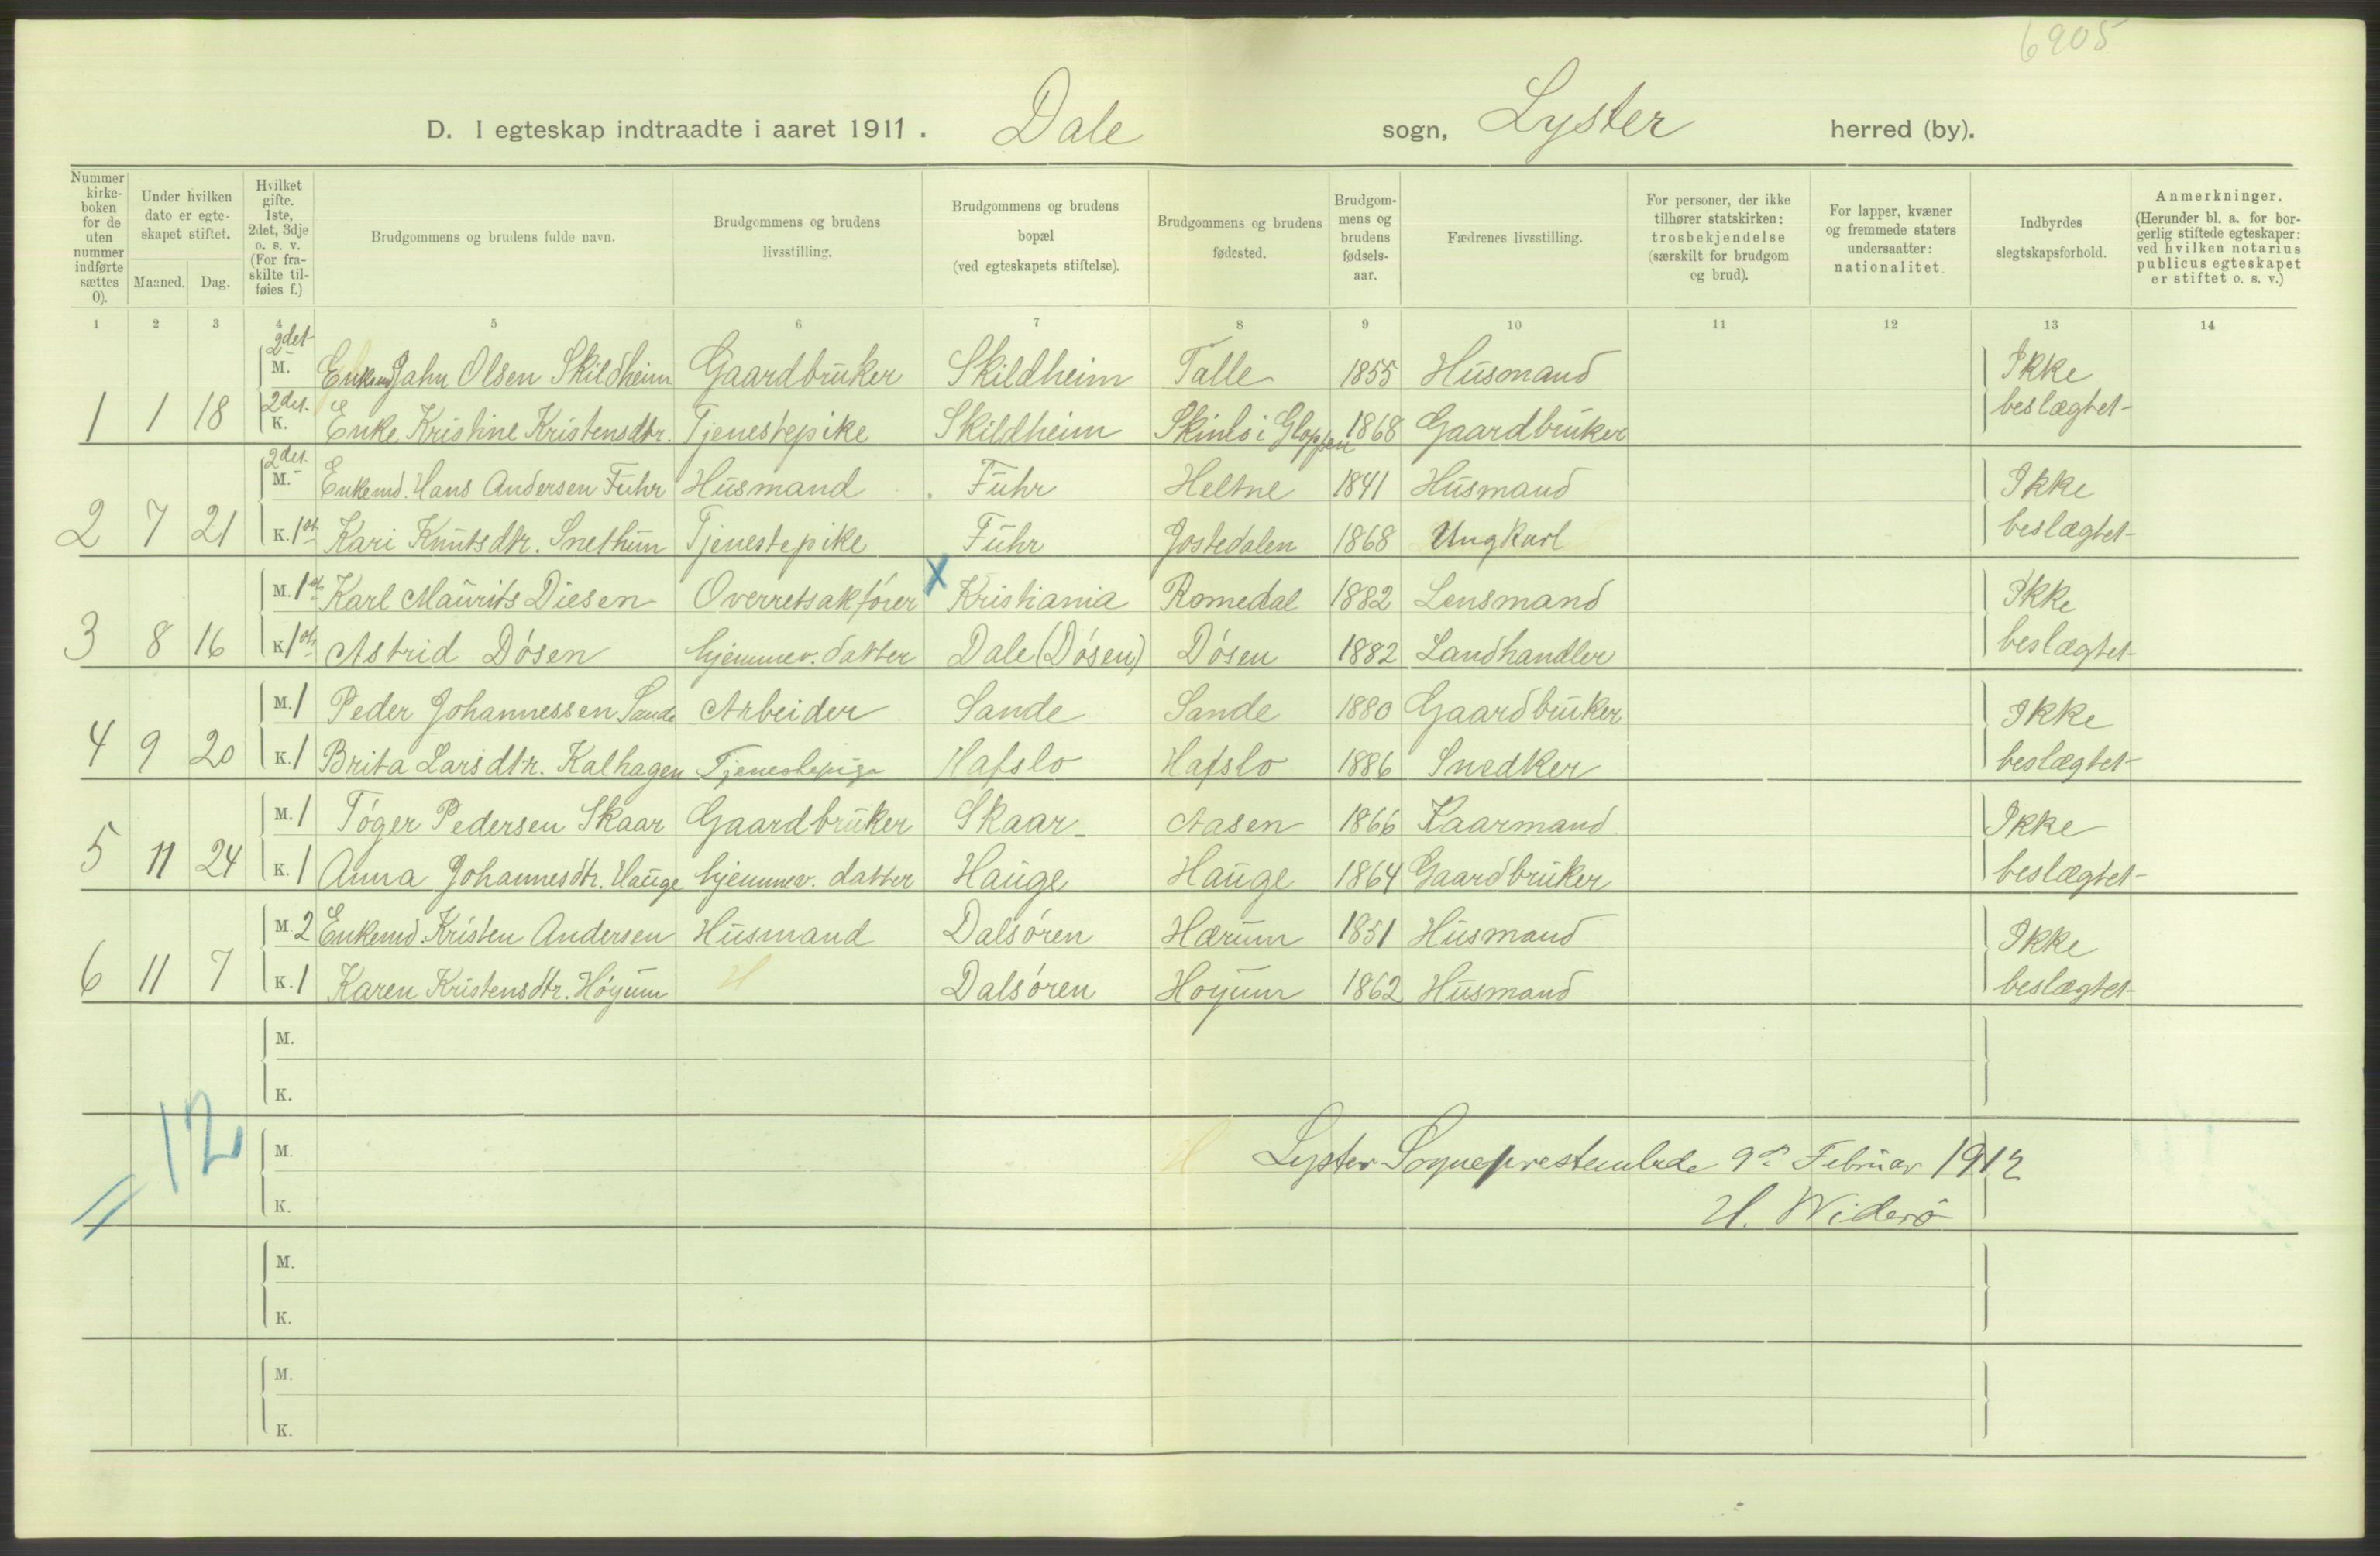 6905
D. I egteskap indtraadte i aaret 1911. Dale sogn, Lyster herred (by).
Nummer kirke-boken for de uten nummer indførte sættes 0).
Under hvilken dato er egte-skapet stiftet.
Maaned. Dag.
Hvilket gifte. 1ste, 2det, 3dje o. s. v. (For fra-skilte til-føies f.)
Brudgommens og brudens fulde navn.
Brudgommens og brudens livsstilling.
Brudgommens og brudens bopæl (ved egteskapets stiftelse).
Brudgommens og brudens fødested.
Brudgom-mens og brudens fødsels-aar.
Fædrenes livsstilling.
For personer, der ikke tilhører statskirken: trosbekjendelse (særskilt for brudgom og brud).
For lapper, kvæner og fremmede staters undersaatter: nationalitet.
Indbyrdes slegtskapsforhold.
Anmerkninger. (Herunder bl. a. for bor-gerlig stiftede egteskaper: ved hvilken notarius publicus egteskapet er stiftet o. s. v.)
1 2 3 4 5 6 7 8 9 10 11 12 13 14
2det M. Enkemd Jahn Olsen Skildheim Gaardbruker Skildheim Talle 1855 Husmand Ikke
1 1 18 2det. K. Enke Kristine Kristensdtr. Tjenestepike Skildheim i Gloppen 1868 Gaardbruker beslægtet
2det. M. Enkemd. Hans Andersen Fuhr Husmand Fuhr Heltne 1841 Husmand Ikke
2 7 21 K. 1st Kari Knutsdtr. Snethun Tjenestepike Fuhr Jostedalen 1868 Ungkarl beslægtet
M. 1st Karl Maurits Diesen Overretsakfører X Kristiania Romedal 1882 Lensmand Ikke
3 8 16 K. 1st Astrid Døsen hjemmev. datter Dale (Døsen) Døsen 1882 Landhandler beslægtet
M. 1 Peder Johannessen Sande Arbeider Sande Sande 1880 Gaardbruker Ikke
4 9 20 K. 1 Brita Larsdtr. Kalhagen Tjenestepige Hafslo Hafslo 1886 Snedker beslægtet
M. 1 Tøger Pedersen Skaar Gaardbruker Skaar Aasen 1866 Kaarmand Ikke
5 11 24 K. 1 Anna Johannesdtr. Hauge hjemmev. datter Hauge Hauge 1864 Gaardbruker beslægtet
M. 2 Enkemd. Kristen Andersen Husmand Dalsøren Hærum 1851 Husmand Ikke
6 11 7 K. 1 Karen Kristensdtr. Høyum Dalsøren Høyum 1862 Husmand beslægtet
M.
K.
12
M. Lyster Sogneprestembede 9de Februar 1912
K. H. Widerø
M.
K.
M.
K.